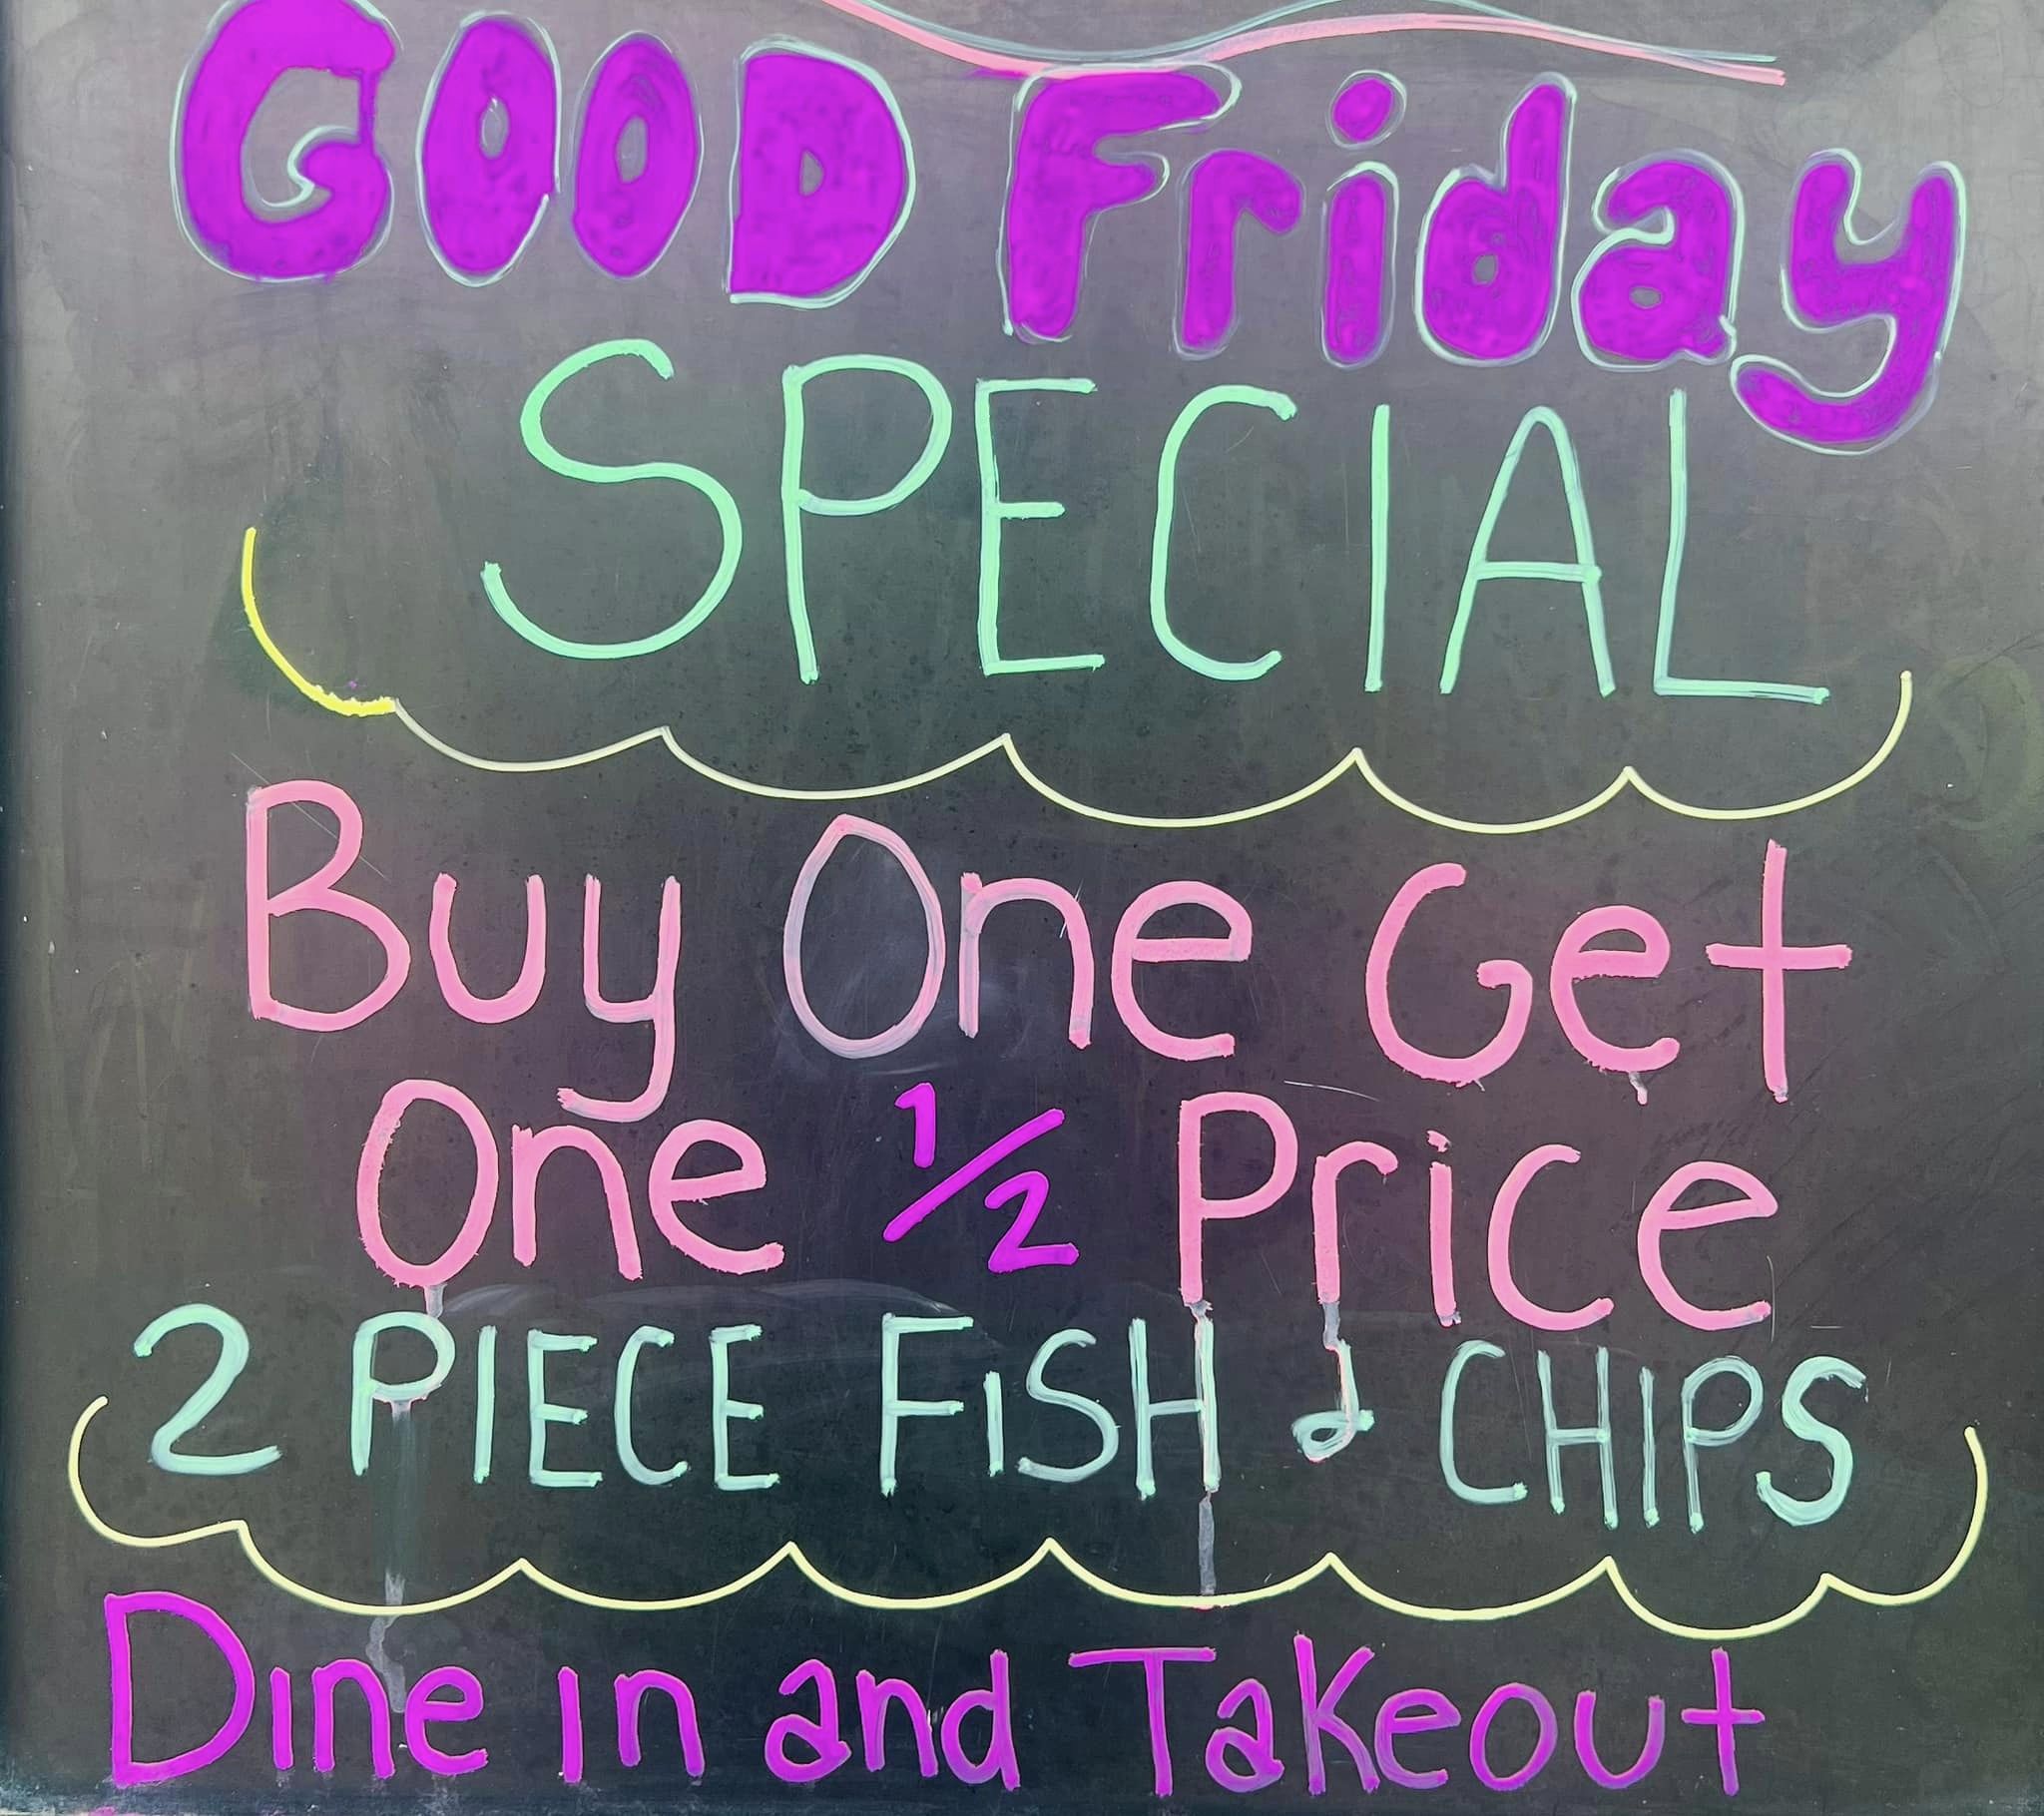 GOOD Friday
SPECIAL
Buy One Get
One 1/2 Price
2 PIECE FiSH & CHIPS
Dine in and Takeout